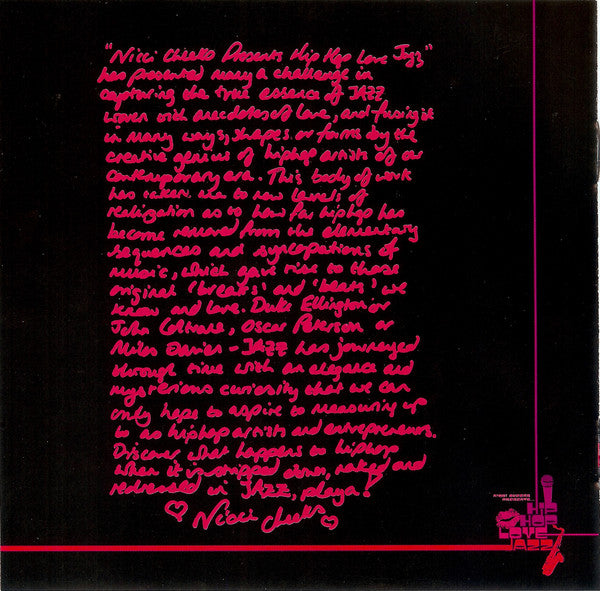 "Nicci Cheeks Presents Hip Hop Love Jazz"
has presented many a challenge in
capturing the true essence of JAZZ
woven with anecdotes of love, and fusing it
in many ways, shapes or forms by the
creative genius of hiphop artists of our
contemporary era. This body of work
has taken me to new levels of
realization as to how far hiphop has
become removed from the elementary
sequences and syncopations of
music, which gave rise to those
original 'breaks' and 'beats' we
know and love. Duke Ellington or
John Coltrane, Oscar Peterson or
Miles Davies - JAZZ has journeyed
through time with an elegance and
mysterious curiosity that we can
only hope to aspire to measuring up
to as hiphop artists and entrepreneurs.
Discover what happens to hiphop
when it is stripped down, naked and
redressed in JAZZ, playa!
Nicci Cheeks
HIP
HOP
LOVE
JAZZ